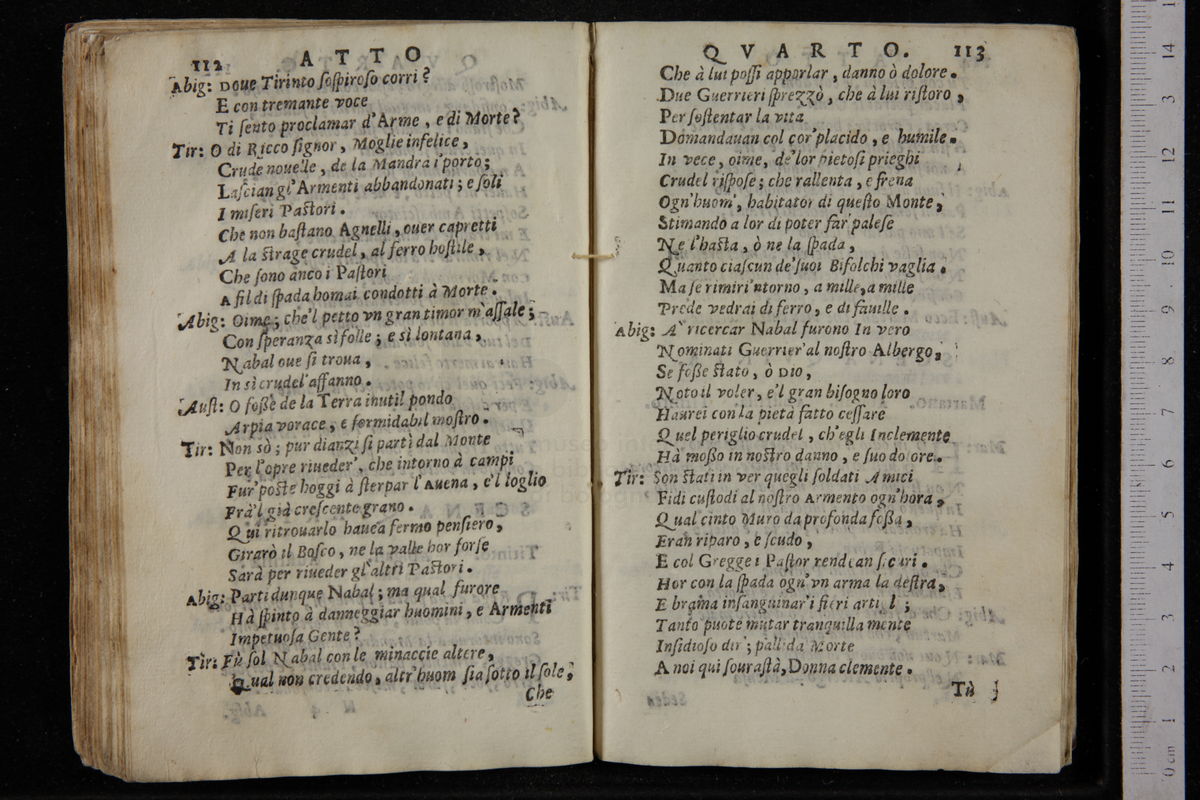 112 ATTO
Abig: Doue Tirinto soſpiroſo corri?
E con tremante voce
Ti ſento proclamar d'Arme, e di Morte?
Tir: O di Ricco ſignor, Moglie infelice,
Crude nouelle, de la Mandra i' porto;
Laſcian gl'Armenti abbandonati; e ſoli
I miſeri Paſtori.
Che non baſtano Agnelli, ouer capretti
A la ſtrage crudel, al ferro hoſtile,
Che ſono anco i Paſtori
A fil di ſpada homai condotti à Morte.
Abig: Oime; che'l petto vn gran timor m'aſſale;
Con ſperanza sì folle; e sì lontana,
Nabal oue ſi troua,
In sì crudel'affanno.
Auſt: O foße de la Terra inutil pondo
Arpia vorace, e formidabil moſtro.
Tir: Non sò; pur dianzi ſi partì dal Monte
Per l'opre riueder', che intorno à campi
Fur' poſte hoggi à ſterpar l'Auena, e'l loglio
Frà'l già creſcente grano.
Quì ritrouarlo hauea fermo penſiero,
Girarò il Boſco, ne la valle hor forſe
Sarà per riueder gl'altri Paſtori.
Abig: Parti dunque Nabal; ma qual furore
Hà ſpinto à danneggiar huomini, e Armenti
Impetuoſa Gente?
Tir: Fù ſol Nabal con le minaccie altere,
Qual non credendo, altr'huom ſia ſotto il ſole;
Che
QVARTO. 113
Che à lui poſſi apportar, danno ò dolore.
Due Guerrieri ſprezzò, che à lui riſtoro,
Per ſoſtentar la vita
Domandauan col cor' placido, e humile.
In vece, oime, de' lor pietoſi prieghi
Crudel riſpoſe; che rallenta, e frena
Ogn'huom', habitator di queſto Monte,
Stimando a lor di poter far' paleſe
Ne l'haſta, ò ne la ſpada,
Quanto ciaſcun de' ſuoi Bifolchi vaglia.
Ma ſe rimiri 'ntorno, a mille, a mille
Prede vedrai di ferro, e di fauille.
Abig: A' ricercar Nabal furono In vero
Nominati Guerrier' al noſtro Albergo,
Se foße ſtato, ò Dio,
Noto il voler, e'l gran biſogno loro
Haurei con la pietà fatto ceſſare
Quel periglio crudel, ch'egli Inclemente
Hà moßo in noſtro danno, e ſuo do ore.
Tir: Son ſtati in ver quegli ſoldati Amici
Fidi cuſtodi al noſtro Armento ogn'hora,
Qual cinto Muro da profonda foßa,
Eran riparo, e ſcudo,
E col Gregge i Paſtor rendean ſicuri.
Hor con la ſpada ogn'vn arma la deſtra,
E brama inſanguinar' i fieri
Tanto puote mutar tranquilla mente
Inſidioſo dir'; pallida Morte
A noi qui ſouraſtà, Donna clemente.
Tù